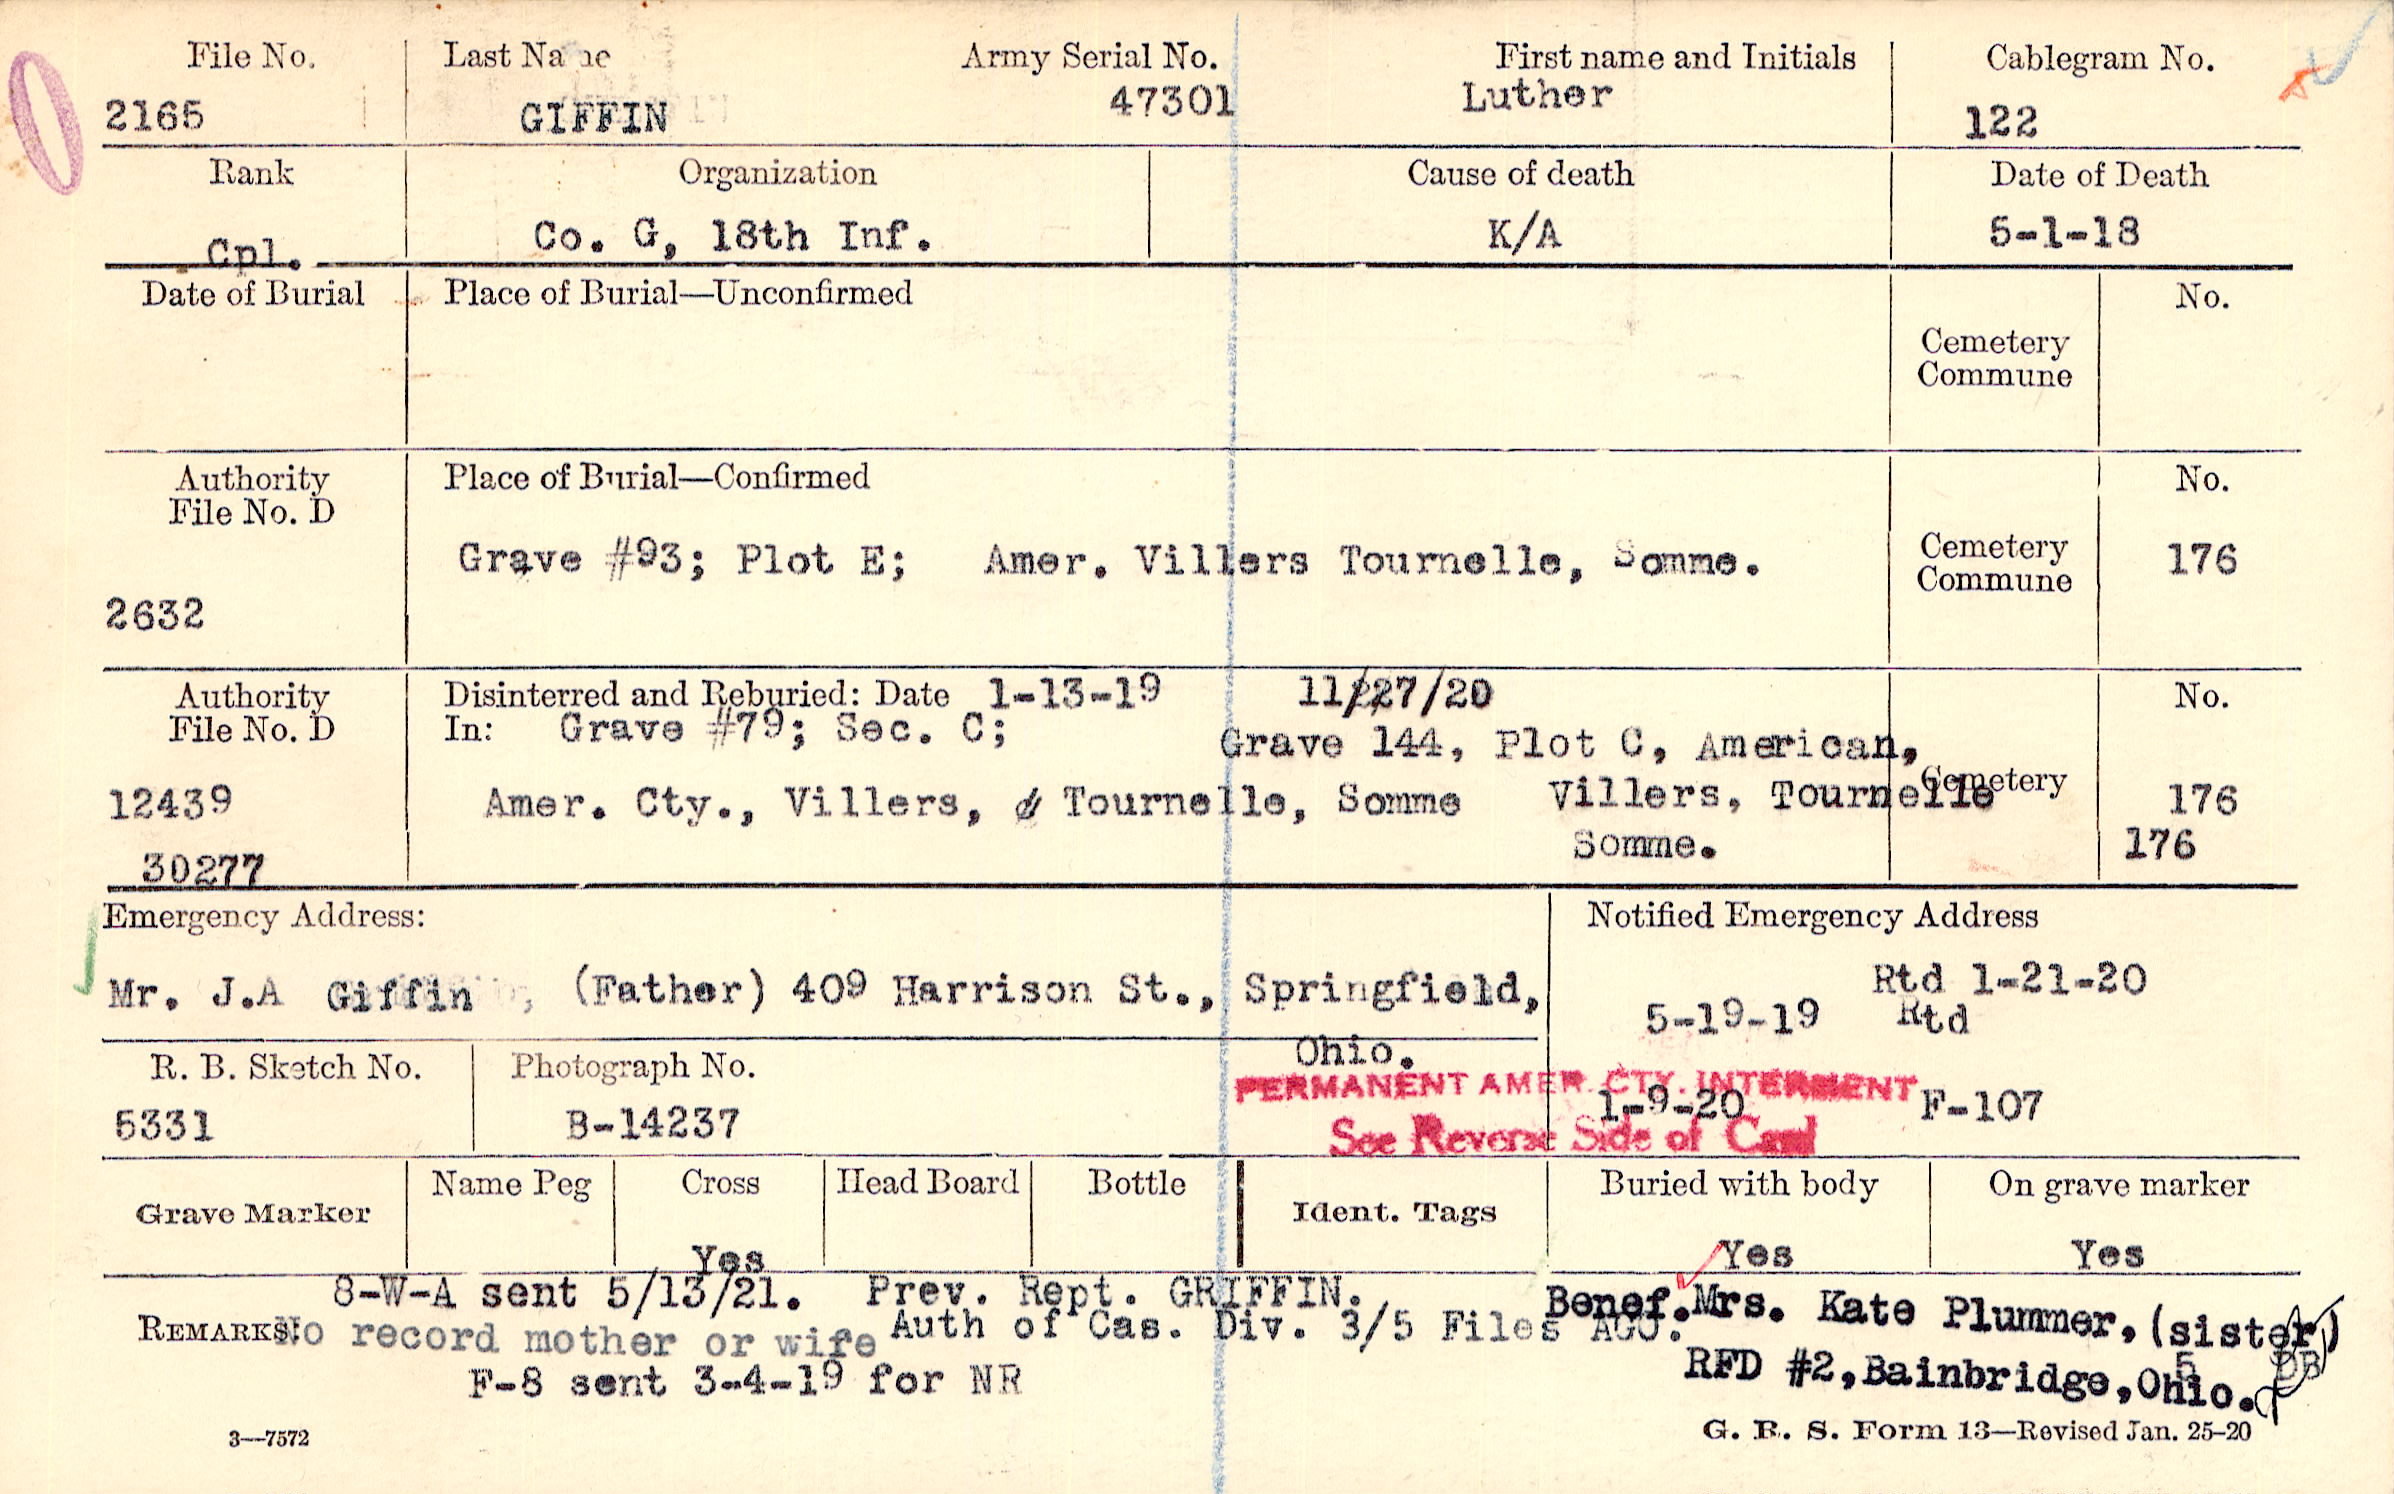 File No. Last Name Army Serial No. First name and Initials Cablegram No.
2165 GIFFIN 47301 Luther 122
Rank Organization Cause of death Date of Death
Cpl. Co. G, 18th Inf. K/A 5-1-18
Date of Burial Place of Burial—Unconfirmed No.
Cemetery
Commune
Authority Place of Burial—Confirmed No.
File No. D
Grave #93; Plot E; Amer. Villers Tournelle, Somme. Cemetery 176
Commune
2632
Authority Disinterred and Reburied: Date 1-13-19 11/27/20 No.
File No. D In: Grave #79; Sec. C;
Grave 144, Plot C, American,
12439 Amer. Cty., Villers, Tournelle, Somme Villers, Tournelle Cemetery 176
Somme. 176
30277
Emergency Address: Notified Emergency Address
Mr. J.A Giffin, (Father) 409 Harrison St., Springfield, Rtd 1-21-20
5-19-19 Rtd
Ohio.
R. B. Sketch No. Photograph No.
PERMANENT AMER. CTY. INTERMENT
5331 B-14237 1-9-20 F-107
See Reverse Side of Card
Grave Marker Name Peg Cross Head Board Bottle Ident. Tags Buried with body On grave marker
Yes Yes Yes
8-W-A sent 5/13/21. Prev. Rept. GRIFFIN. Benef. Mrs. Kate Plummer, (sister)
REMARKS: No record mother or wife Auth of Cas. Div. 3/5 Files AGO.
RFD #2, Bainbridge, Ohio.
F-8 sent 3-4-19 for NR
5 DB
3—7572 G. R. S. Form 13—Revised Jan. 25-20